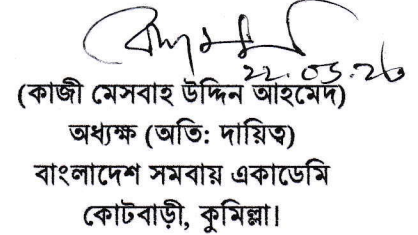 22.03.26
(কাজী মেসবাহ উদ্দিন আহমেদ)
অধ্যক্ষ (অতি: দায়িত্ব)
বাংলাদেশ সমবায় একাডেমি
কোটবাড়ী, কুমিল্লা।